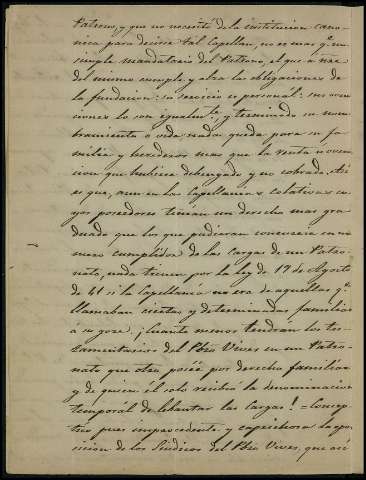 Patrono, y que no necesitó de la institucion cano-
nica para decirse tal Capellan, no es mas q.e un
simple mandatario del Patrono, el que a nre
del mismo cumple y alza las obligaciones de
la fundacion: su servicio es personal: sus
ciones lo son igualm.te, y terminado su nom-
bramiento o vida nada queda para su fa-
milia y herederos mas que la renta o
cion que hubiere debengado y no cobrado. Asi
es que, aun en las Capellanias colativas cu-
yos poseedores tenian un derecho mas gra-
duado que los que pudieran
mero cumplidor de las Cargas de un Patro-
nato, nada tienen por la ley de 19 de Agosto
de 41 si la Capellanía no era de aquellas q.e
llamaban ciertas y determinadas familias
á su goce. ¡Cuanto menos tendran los tes-
tamentarios del Pbro Vives en un Patro-
nato que otro poseé por derecho familiar
y de quien él solo recibia la denominacion
temporál de lebantar las Cargas! = Concep-
tuo pues improcedente y caprichosa la opo-
sicion de los Sindicos del Pbro Vives, que asi